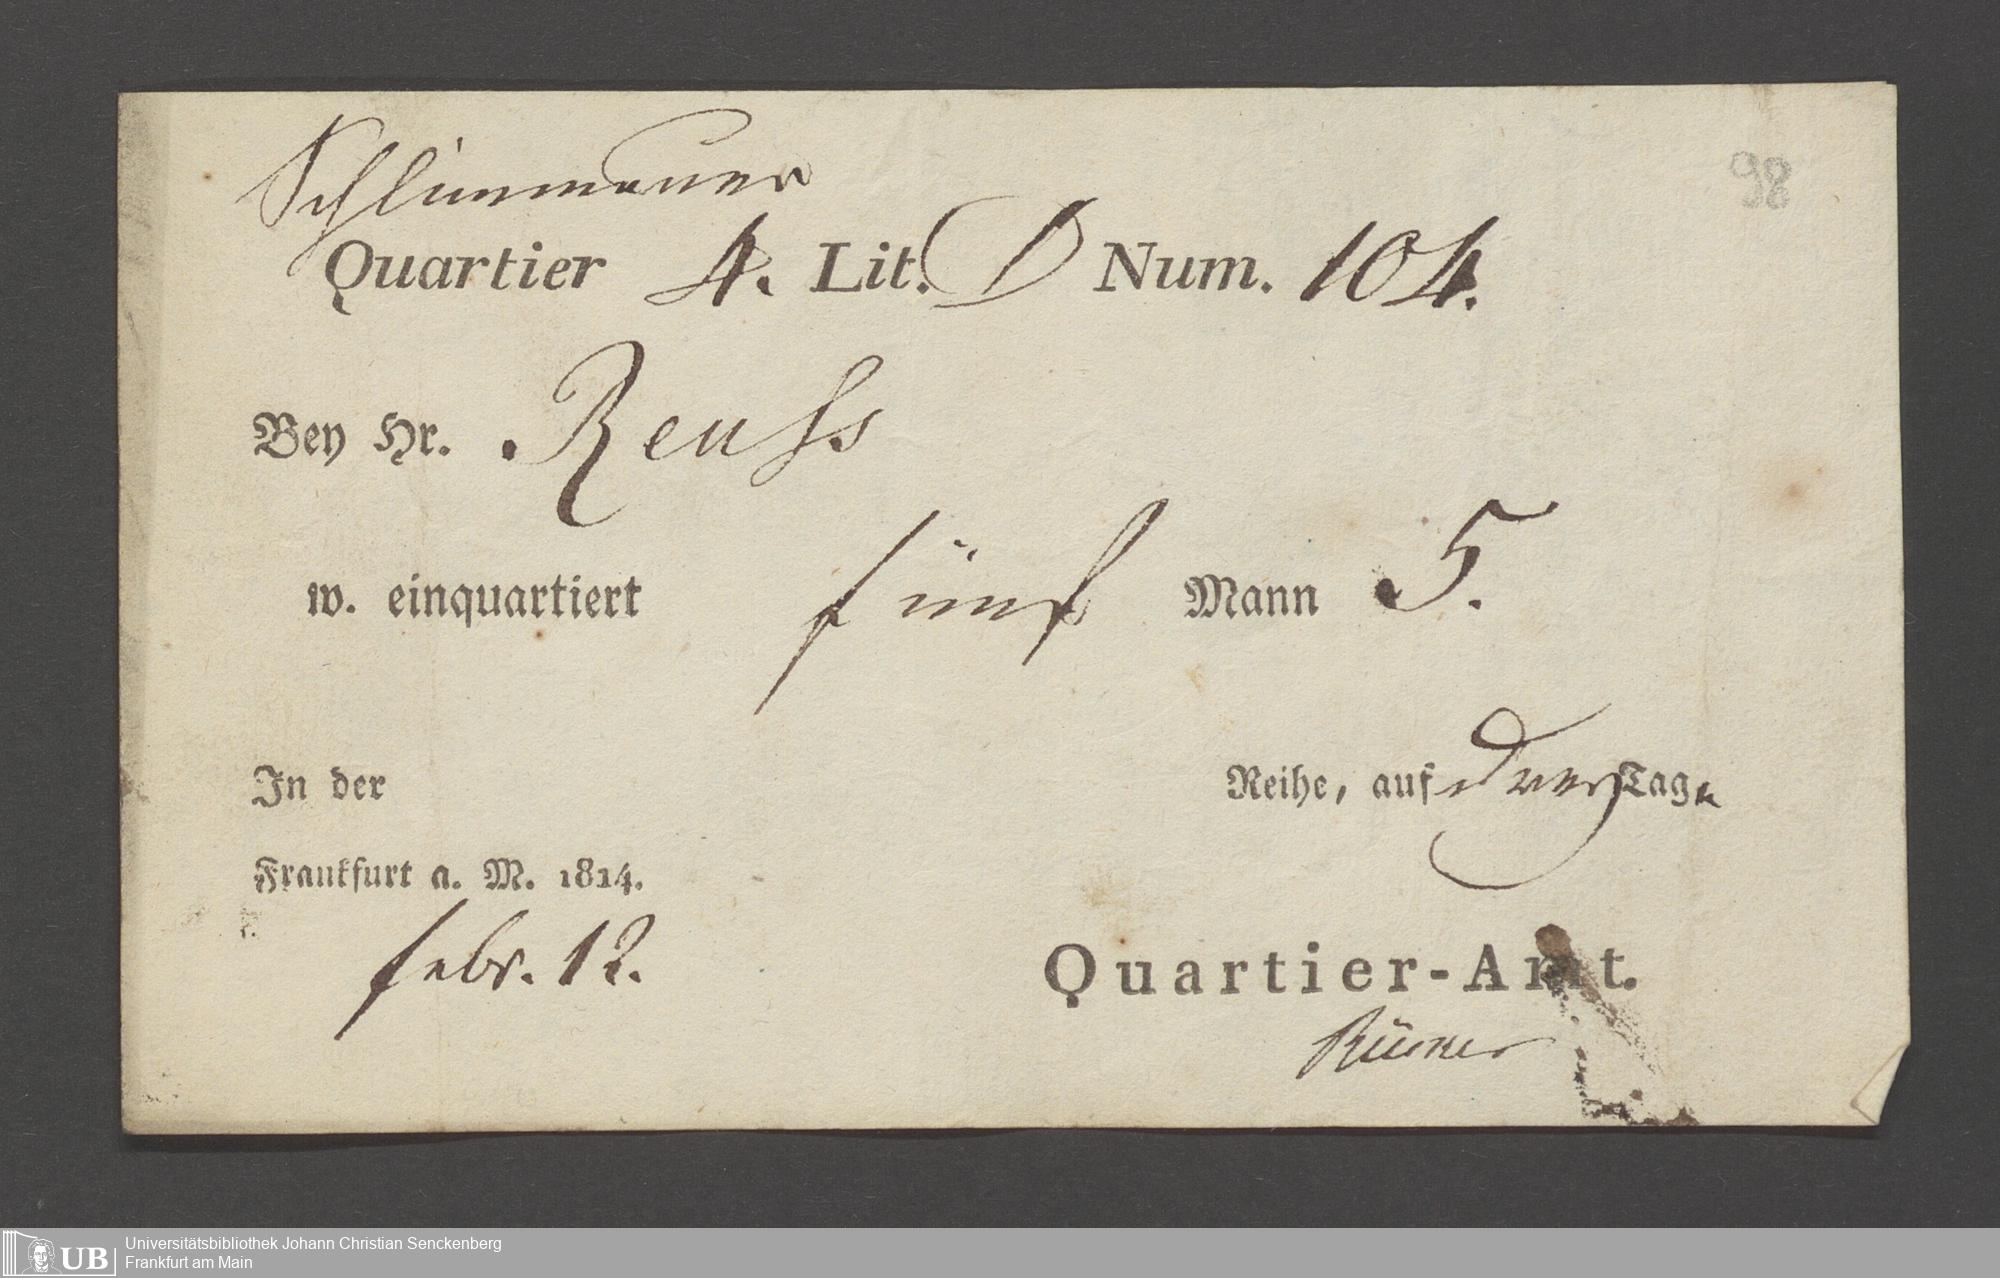 Schlimmauer
98
Quartier 4. Lit. D Num. 104.
Bey Hr. Reuss
w. einquartiert fünf Mann 5.
In der Reihe, auf drey Tage
Frankfurt a. M. 1814.
febr. 12.
Quartier-Amt.
UB Universitätsbibliothek Johann Christian Senckenberg
Frankfurt am Main